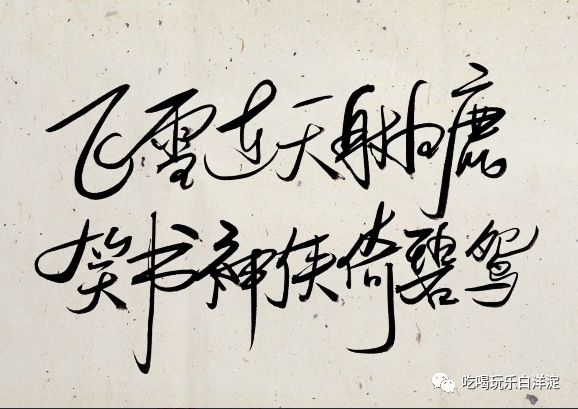 飞雪连天射白鹿
笑书神侠倚碧鸳
吃喝玩乐白洋淀